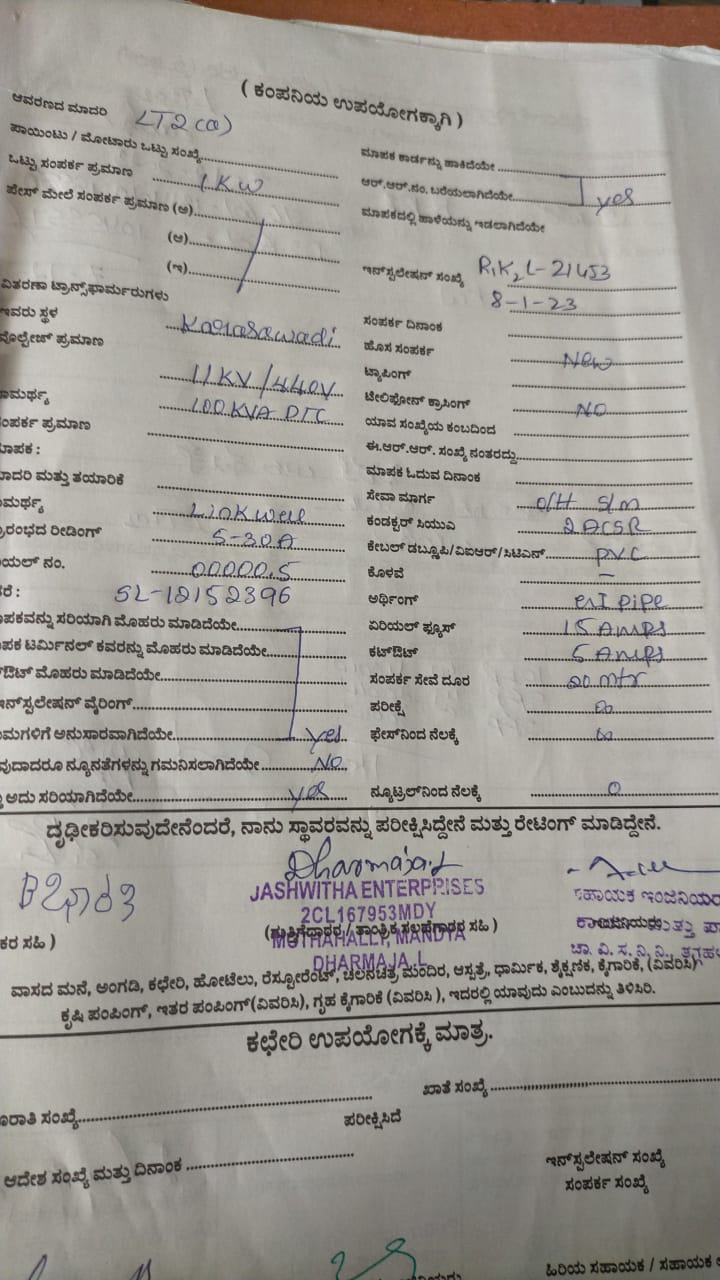 ( ಕಂಪನಿಯ ಉಪಯೋಗಕ್ಕಾಗಿ )
ಆವರಣದ ಮಾದರಿ LT2(a)
ಪಾಯಿಂಟು / ಮೋಟಾರು ಒಟ್ಟು ಸಂಖ್ಯೆ
ಒಟ್ಟು ಸಂಪರ್ಕ ಪ್ರಮಾಣ 1KW
ಪೇಸ್ ಮೇಲೆ ಸಂಪರ್ಕ ಪ್ರಮಾಣ (ಅ)
(ಆ)
(ಇ)
ವಿತರಣಾ ಟ್ರಾನ್ಸ್‌ಫಾರ್ಮರುಗಳು
ಇವರು ಸ್ಥಳ
ವೊಲ್ಟೇಜ್ ಪ್ರಮಾಣ
11KV/440V
ಾಮರ್ಥ್ಯ 100KVA DTC
ಸಂಪರ್ಕ ಪ್ರಮಾಣ
ಮಾಪಕ :
ಮಾದರಿ ಮತ್ತು ತಯಾರಿಕೆ
ಾಮರ್ಥ್ಯ Linkwell
ಪ್ರಾರಂಭದ ರೀಡಿಂಗ್ 5-30A
ಯಲ್ ನಂ. 00000.5
SL-12152396
ಪಕವನ್ನು ಸರಿಯಾಗಿ ಮೊಹರು ಮಾಡಿದೆಯೇ
ಪಕ ಟರ್ಮಿನಲ್ ಕವರನ್ನು ಮೊಹರು ಮಾಡಿದೆಯೇ
ಔಟ್ ಮೊಹರು ಮಾಡಿದೆಯೇ
ಇನ್‌ಸ್ಪಲೇಷನ್ ವೈರಿಂಗ್
ಮಗಳಿಗೆ ಅನುಸಾರವಾಗಿದೆಯೇ yes
ವುದಾದರೂ ನ್ಯೂನತೆಗಳನ್ನು ಗಮನಿಸಲಾಗಿದೆಯೇ No
ಅದು ಸರಿಯಾಗಿದೆಯೇ yes
ಮಾಪಕ ಕಾರ್ಡನ್ನು ಹಾಕಿದೆಯೇ
ಆರ್.ಆರ್.ನಂ. ಬರೆಯಲಾಗಿದೆಯೇ yes
ಮಾಪಕದಲ್ಲಿ ಹಾಳೆಯನ್ನು ಇಡಲಾಗಿದೆಯೇ
ಇನ್‌ಸ್ಪಲೇಷನ್ ಸಂಖ್ಯೆ
8-1-23
ಸಂಪರ್ಕ ದಿನಾಂಕ
ಹೊಸ ಸಂಪರ್ಕ New
ಟ್ಯಾಪಿಂಗ್
ಟೆಲಿಫೋನ್ ಕ್ರಾಸಿಂಗ್ NO
ಯಾವ ಸಂಖ್ಯೆಯ ಕಂಬದಿಂದ
ಈ.ಆರ್.ಆರ್. ಸಂಖ್ಯೆ ನಂತರದ್ದು
ಮಾಪಕ ಓದುವ ದಿನಾಂಕ
ಸೇವಾ ಮಾರ್ಗ O/H S/m
ಕಂಡಕ್ಟರ್ ಸಿಯುಎ 2 ACSR
ಕೇಬಲ್ ಡಬ್ಲ್ಯೂಪಿ/ವಿಐಆರ್/ಸಿಟಿಎಸ್ PVC
ಕೊಳವೆ –
ಅರ್ಥಿಂಗ್ pipe
ಏರಿಯಲ್ ಫ್ಯೂಸ್ 15 AMPS
ಕಟ್‌ಔಟ್ 5 AMPS
ಸಂಪರ್ಕ ಸೇವೆ ದೂರ 20 mtr
ಪರೀಕ್ಷೆ ∞
ಫೇಸ್‌ನಿಂದ ನೆಲಕ್ಕೆ ∞
ನ್ಯೂಟ್ರಲ್‌ನಿಂದ ನೆಲಕ್ಕೆ 0
ದೃಢೀಕರಿಸುವುದೇನೆಂದರೆ, ನಾನು ಸ್ಥಾವರವನ್ನು ಪರೀಕ್ಷಿಸಿದ್ದೇನೆ ಮತ್ತು ರೇಟಿಂಗ್ ಮಾಡಿದ್ದೇನೆ.
JASHWITHA ENTERPRISES
2CL167953MDY
(ಗುತ್ತಿಗೆದಾರರ / ತಾಂತ್ರಿಕ ಸಲಹೆಗಾರರ ಸಹಿ )
MUTHAHALLY, MANDYA
DHARMAJA.L
ಕರ ಸಹಿ )
ಸಹಾಯಕ ಇಂಜಿನಿಯರ
ವಾಸದ ಮನೆ, ಅಂಗಡಿ, ಕಛೇರಿ, ಹೋಟೆಲು, ರೆಸ್ಟೋರೆಂಟ್, ಚಲನಚಿತ್ರ ಮಂದಿರ, ಆಸ್ಪತ್ರೆ, ಧಾರ್ಮಿಕ, ಶೈಕ್ಷಣಿಕ, ಕೈಗಾರಿಕೆ, (ವಿವರಿಸಿ)
ಕೃಷಿ ಪಂಪಿಂಗ್, ಇತರ ಪಂಪಿಂಗ್(ವಿವರಿಸಿ), ಗೃಹ ಕೈಗಾರಿಕೆ (ವಿವರಿಸಿ ), ಇದರಲ್ಲಿ ಯಾವುದು ಎಂಬುದನ್ನು ತಿಳಿಸಿರಿ.
ಕಛೇರಿ ಉಪಯೋಗಕ್ಕೆ ಮಾತ್ರ.
ರಾತಿ ಸಂಖ್ಯೆ
ಖಾತೆ ಸಂಖ್ಯೆ
ಪರೀಕ್ಷಿಸಿದೆ
ಆದೇಶ ಸಂಖ್ಯೆ ಮತ್ತು ದಿನಾಂಕ
ಇನ್‌ಸ್ಪಲೇಷನ್ ಸಂಖ್ಯೆ
ಸಂಪರ್ಕ ಸಂಖ್ಯೆ
ಹಿರಿಯ ಸಹಾಯಕ / ಸಹಾಯಕ